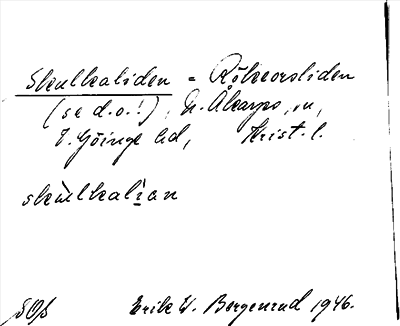 Skulkaliden = Rökorsliden
(se d.o.!), N. Åkarps sn,
V. Göinge hd, Krist. l.
skulkalian
Erik W. Bergenrud 1946.